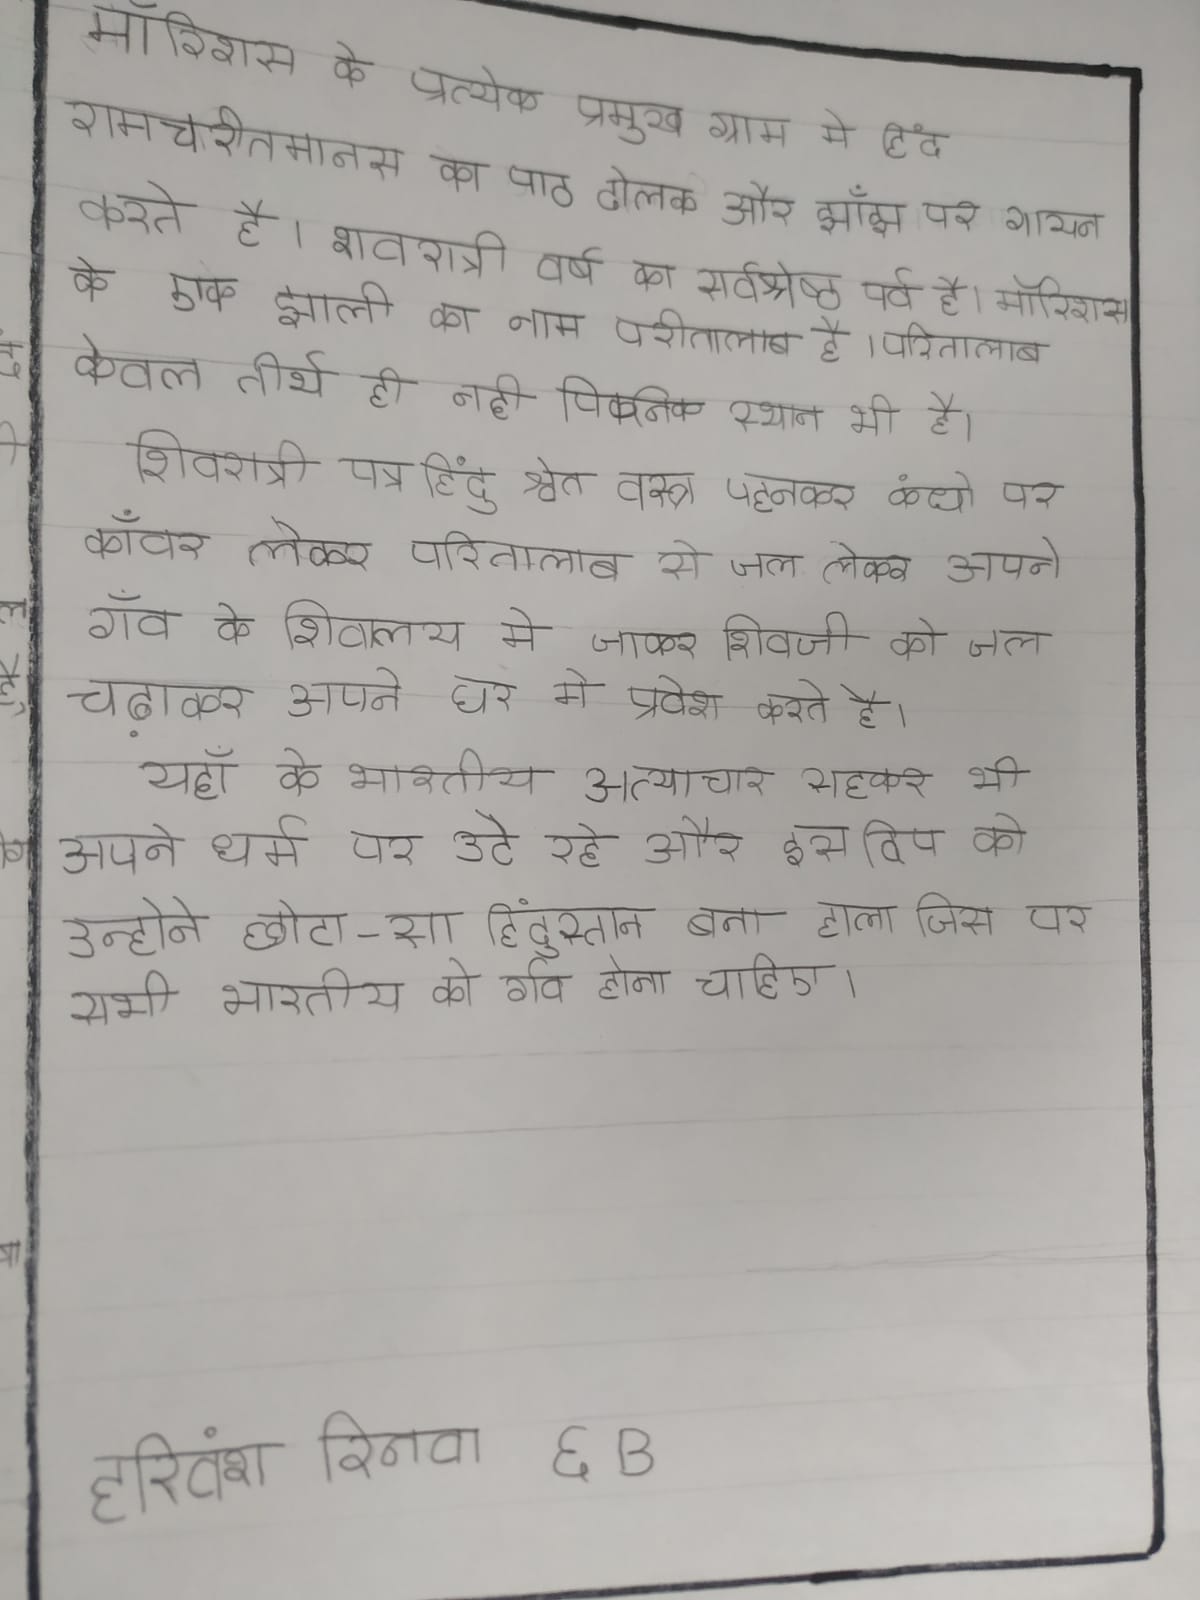 मॉरिशस के प्रत्येक प्रमुख ग्राम मे हिंद
रामचरीतमानस का पाठ ढोलक और झाँझ पर गायन
करते है। शवरात्री वर्ष का सर्वश्रेष्ठ पर्व है। मॉरिशस
के एक झाली का नाम परीतालाब है ।परितालाब
केवल तीर्थ ही नही पिकनिक स्थान भी है।
शिवरात्री पत्र हिंदु श्वेत वस्त्र पहनकर कंधो पर
काँवर लेकर परितालाब से जल लेकर अपने
गाँव के शिवालय मे जाकर शिवजी को जल
चढ़ाकर अपने घर मे प्रवेश करते है।
यहाँ के भारतीय अत्याचार सहकर भी
अपने धर्म पर उटे रहे और इस द्विप को
उन्होने छोटा-सा हिंदुस्तान बना हाला जिस पर
सभी भारतीय को र्गव होना चाहिए।
हरिवंश रिनवा ६ B